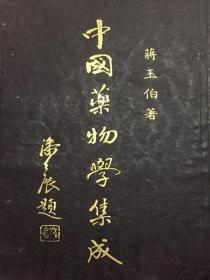 蔣玉伯著
中國藥物學集成
潘公展題